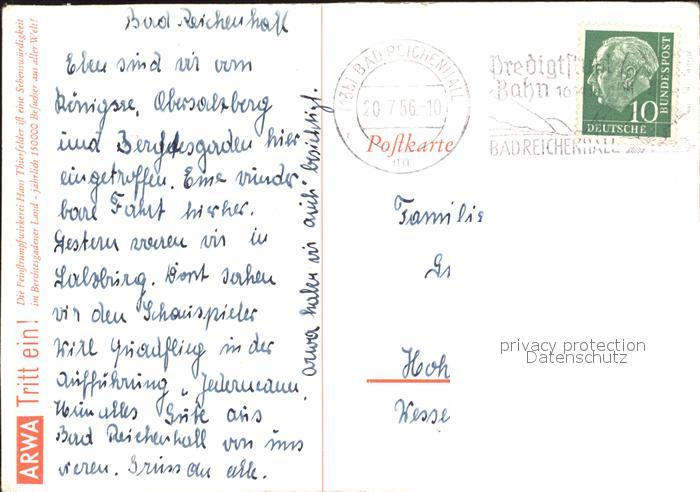 Bad Reichenhall
Eben sind wir vom
Königssee, Obersalzberg
und Berchtesgaden hier
eingetroffen. Eine wunder
bare Fahrt hierher.
Gestern waren wir in
Salzburg. Dort sahen
wir den Schauspieler
Will Quadflieg in der
Aufführung „Jedermann.
Nun alles Gute aus
Bad Reichenhall von uns
Gruss an alle.
Arwa haben wir auch besichtigt.
ARWA Tritt ein!
Die Feinstrumpfwirkerei Hans Thierfelder ist eine Sehenswürdigkeit
im Berchtesgadener Land - jährlich 150000 Besucher aus aller Welt!
(13b) BAD REICHENHALL
20.7.56.-10
Predigtstuhl
Bahn
BAD REICHENHALL
10
DEUTSCHE
BUNDESPOST
Postkarte
Familie
G
Hoh
Wesse
privacy protection
Datenschutz